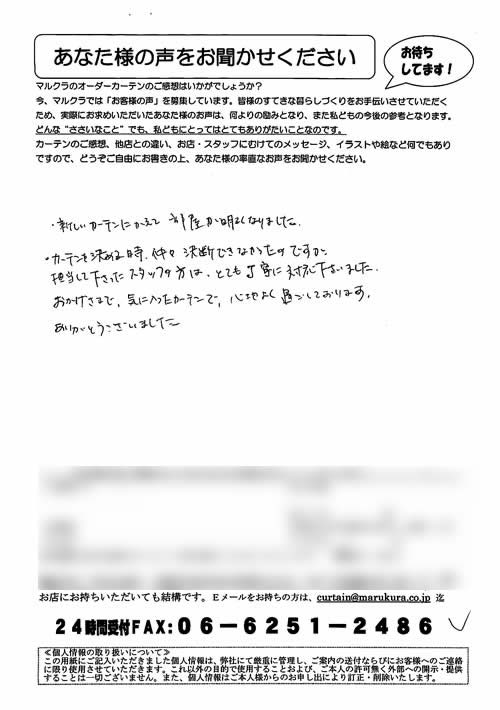 あなた様の声をお聞かせください
お待ち
してます！
マルクラのオーダーカーテンのご感想はいかがでしょうか？
今、マルクラでは「お客様の声」を募集しています。皆様のすてきな暮らしづくりをお手伝いさせていただく
ため、実際にお求めいただいたあなた様のお声は、何よりの励みとなり、また私どもの今後の参考となります。
どんな“ささいなこと”でも、私どもにとってはとてもありがたいことなのです。
カーテンのご感想、他店との違い、お店・スタッフにむけてのメッセージ、イラストや絵など何でもあり
ですので、どうぞご自由にお書きの上、あなた様の率直なお声をお聞かせください。
・新しいカーテンにかえて 部屋が明るくなりました。
・カーテンを決める時、仲々 決断できなかったのですが、
担当して下さったスタッフの方は、とても丁寧に対応下さいました。
おかげさまで、気に入ったカーテンで、心地よく過ごしております。
ありがとうございました
お店にお持ちいただいても結構です。Eメールをお持ちの方は、curtain@marukura.co.jp 迄
24時間受付FAX：06－6251－2486
≪個人情報の取り扱いについて≫
この用紙にご記入いただきました個人情報は、弊社にて厳重に管理し、ご案内の送付ならびにお客様へのご連絡
に限り使用させていただきます。これ以外の目的で使用することおよび、ご本人の許可無く外部への開示・提供
することは一切ございません。また、個人情報はご本人様からのお申し出により訂正・削除いたします。